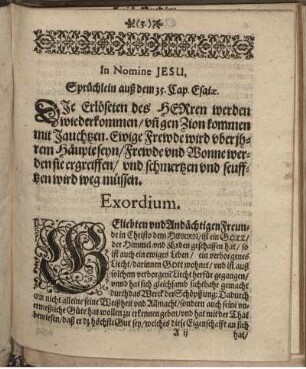 (3.)
In Nomine JESU,
Sprüchlein auß dem 35. Cap. Esaiæ.
DIe Erlöseten des HERren werden
wiederkommen / vñ gen Zion kommen
mit Jauchtzen. Ewige Frewde wird vber jh-
rem Häupte seyn / Frewde vnd Wonne wer-
den sie ergreiffen / vnd schmertzen vnd seuff-
tzen wird weg müssen.
Exordium.
GEliebten vnd Andächtigen Freun-
de in Christo dem HERREN / ist ein GOTT /
der Himmel vnd Erden geschaffen hat / so
ist auch ein ewiges Leben / ein verborgenes
Liecht / darinnen GOtt wohnet / vnd ist auß
solchem verborgenem Liecht herfür gegangen /
vnnd hat sich gleichsamb sichtbahr gemacht
durch das Werck der Schöpffung: Dadurch
er nicht alleine seine Weißheit vnd Allmacht / sondern auch seine vn-
ermeßliche Güte hat wollen zu erkennen geben / vnd hat mit der That
bewiesen / daß er dz höchste Gut sey / welches diese Eigenschafft an sich
A ij hat /